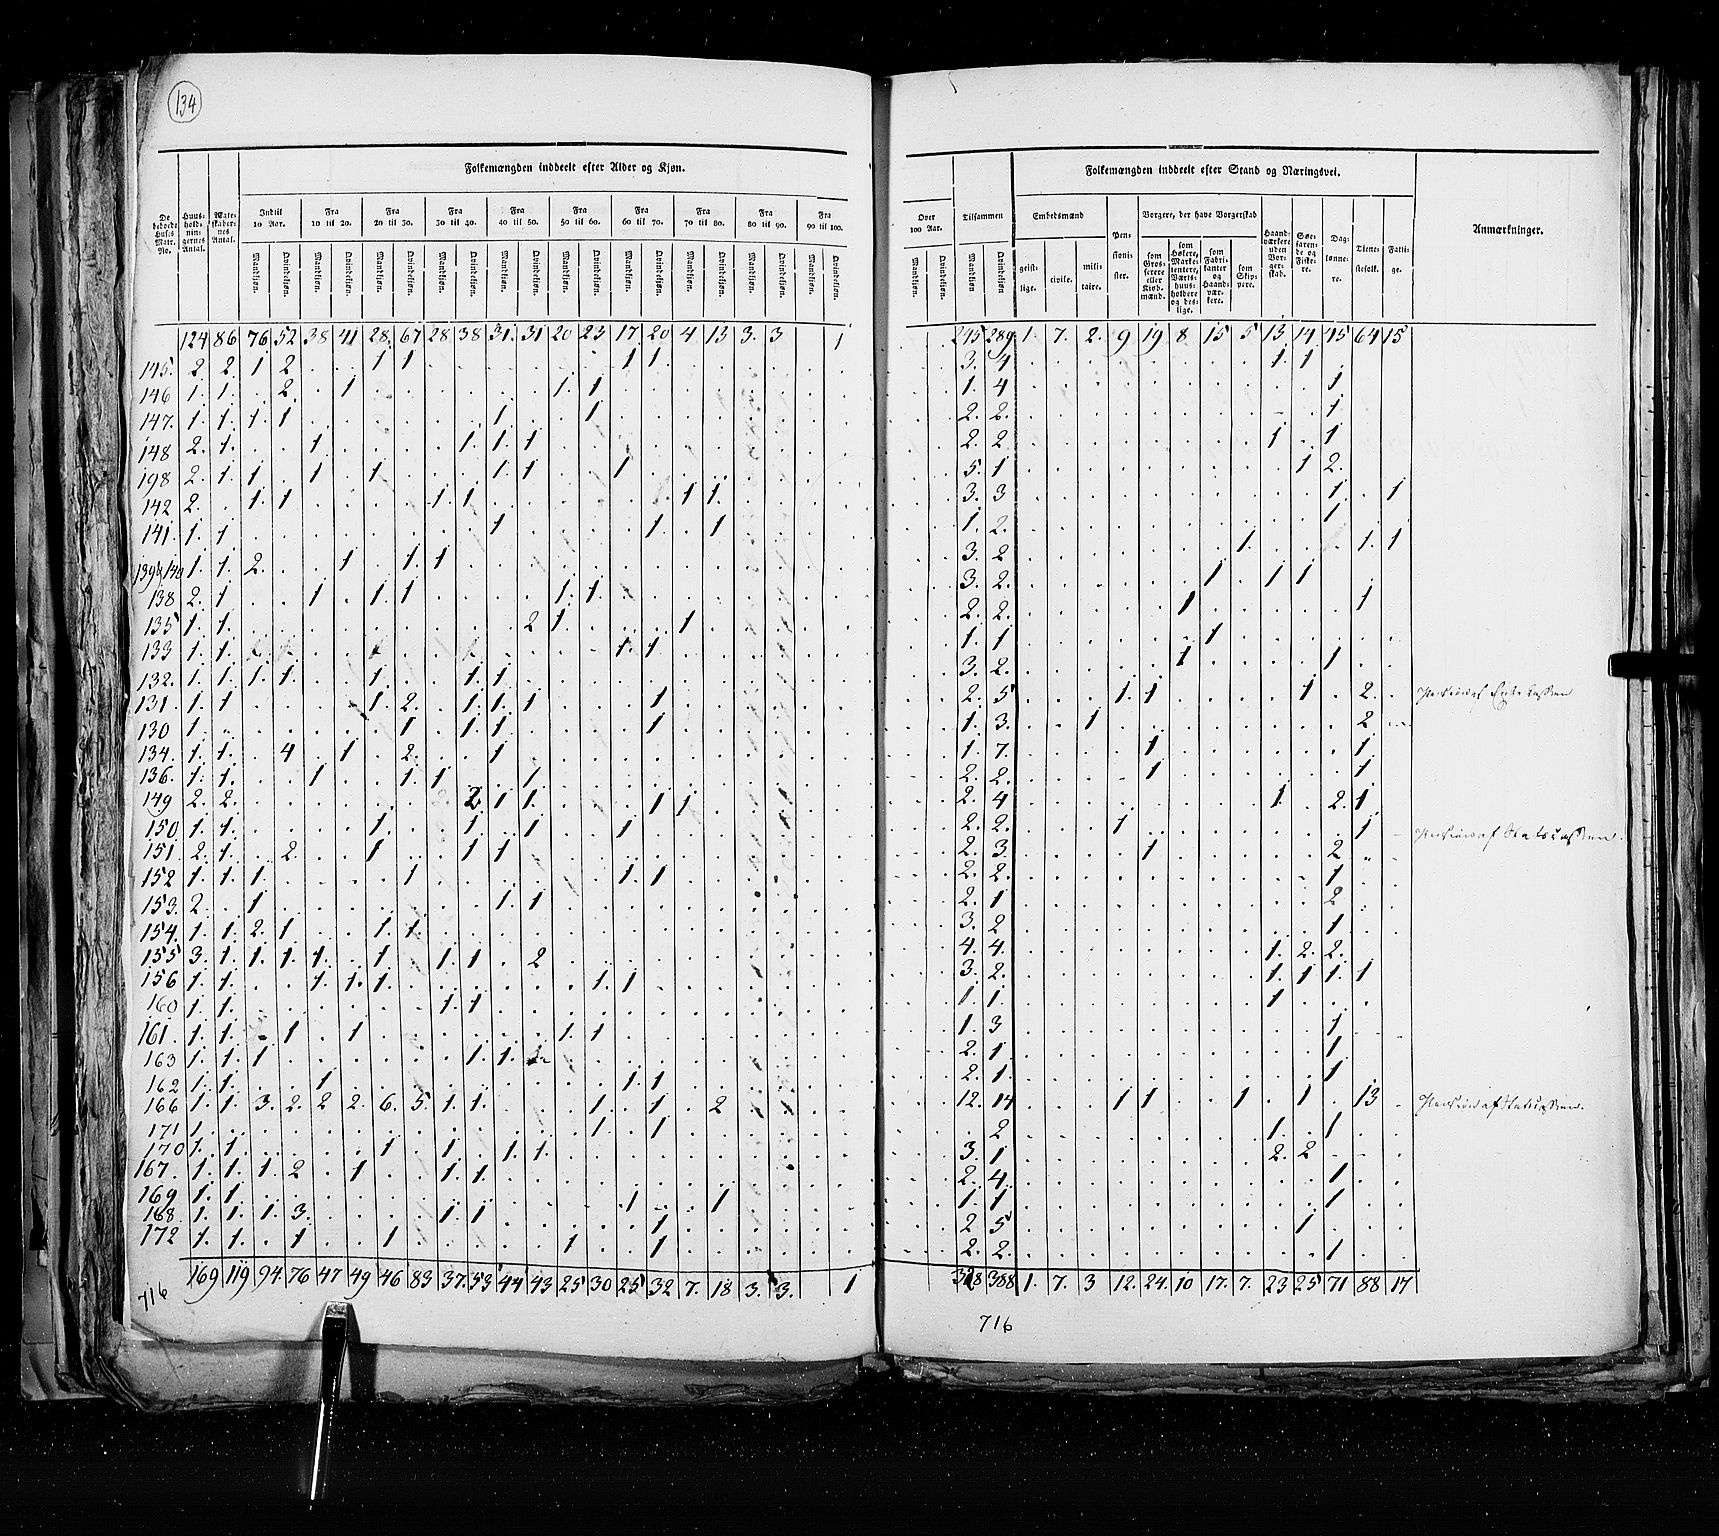 134
Folkemængden inddeelt efter Alder og Kjøn.
De beboede Huses Matr. No.
Huusholdningernes Antal.
Indtil 10 Aar.
Fra 10 til 20.
Fra 20 til 30.
Fra 30 til 40.
Fra 40 til 50.
Fra 50 til 60.
Fra 60 til 70.
Fra 70 til 80.
Fra 80 til 90.
Fra 90 til 100.
Mandkjøn. Qvindekjøn. Mandkjøn. Qvindekjøn. Mandkjøn. Qvindekjøn. Mandkjøn. Qvindekjøn. Mandkjøn. Qvindekjøn. Mandkjøn. Qvindekjøn. Mandkjøn. Qvindekjøn. Mandkjøn. Qvindekjøn. Mandkjøn. Qvindekjøn. Mandkjøn. Qvindekjøn.
124 86 76 52 38 41 28 67 28 38 31 31 20 23 17 20 4 13 3 3 1
145 2 2 1 2 1 1 1 1
146 1 1 2 1 1 1
147 1 1 1 1 1 1
148 2 1 1 1 1 1
198 2 1 1 1 1 1 1 1
142 2 1 1 1 1 1 1
141 1 1 1 1 1
139 & 140 1 1 2 1 1 1
138 2 1 1 1 1 1 1
135 1 1 2 1 1
133 1 1 1 1
132 1 1 1 1 1 1 1
131 1 1 1 2 1 1 1 1
130 1 1 1 1 1
134 1 1 4 1 2 1
136 1 1 1 1 1 1
149 2 2 2 1 1 1 1
150 1 1 1 1 1 1
151 2 1 2 1 1 1
152 1 1 1 1 1 1
153 2 1 1 1
154 1 1 2 1 1 1
155 3 1 1 1 1 1 1 1 2
156 1 1 1 1 1 1 1
160 1 1 1 1
161 1 1 1 1 1 1
163 1 1 1 1 1
162 1 1 1 1 1
166 1 1 3 2 2 2 6 5 1 1 1 1 2 1
171 1 1 1
170 1 1 1 1 1 1
167 1 1 1 2 1 1 1
169 1 1 1 1
168 1 1 1 3 1 1 1
172 1 1 1 1 1 1
169 119 94 76 47 49 46 83 37 53 44 43 25 30 25 32 7 18 3 3 1
716
Folkemængden inddeelt efter Stand og Næringsvei.
Over 100 Aar.
Tilsammen
Embedsmænd
Pensionister.
Borgere, der have Borgerskab
Haandværkere uden Borgerskab.
Søefarende og Fiskere.
Daglønnere.
Tjenestefolk.
Fattige.
Anmærkninger.
Mandkjøn. Qvindekjøn. Mandkjøn Qvindekjøn
geistlige. civile. militaire.
som Grosserere eller Kjøbmænd.
som Høkere, Marketentere, Værtshuusholdere og deslige.
som Fabrikanter og Haandværkere.
som Skippere.
245 289 1 7 2 9 19 8 15 5 13 14 45 64 15
3 4 1 1
1 4 1
2 2 1
2 2 1 1
5 1 1 2
3 3 1 1
1 2 1
3 2 1 1 1
3 2 1 1 1
2 2 1 1
1 1 1
3 2 1 1
2 5 1 1 1 2
1 3 1 2
1 7 1 1
2 2 1 1
2 4 1 2 1
2 2 1 1 Pension af Statscassen.
2 3 1 2
2 2 1
2 1 2
3 2 1
4 4 1 2 2
3 2 1 1 1 1
1 1 1
1 3 1
2 1 1
2 1 1
12 14 1 1 1 1 13 Pension af Statscassen.
2 1 1
3 1 2 2
2 4 1
1 1 1
2 5 1
2 2 1
328 388 1 7 3 12 24 10 17 7 23 25 71 88 17
716